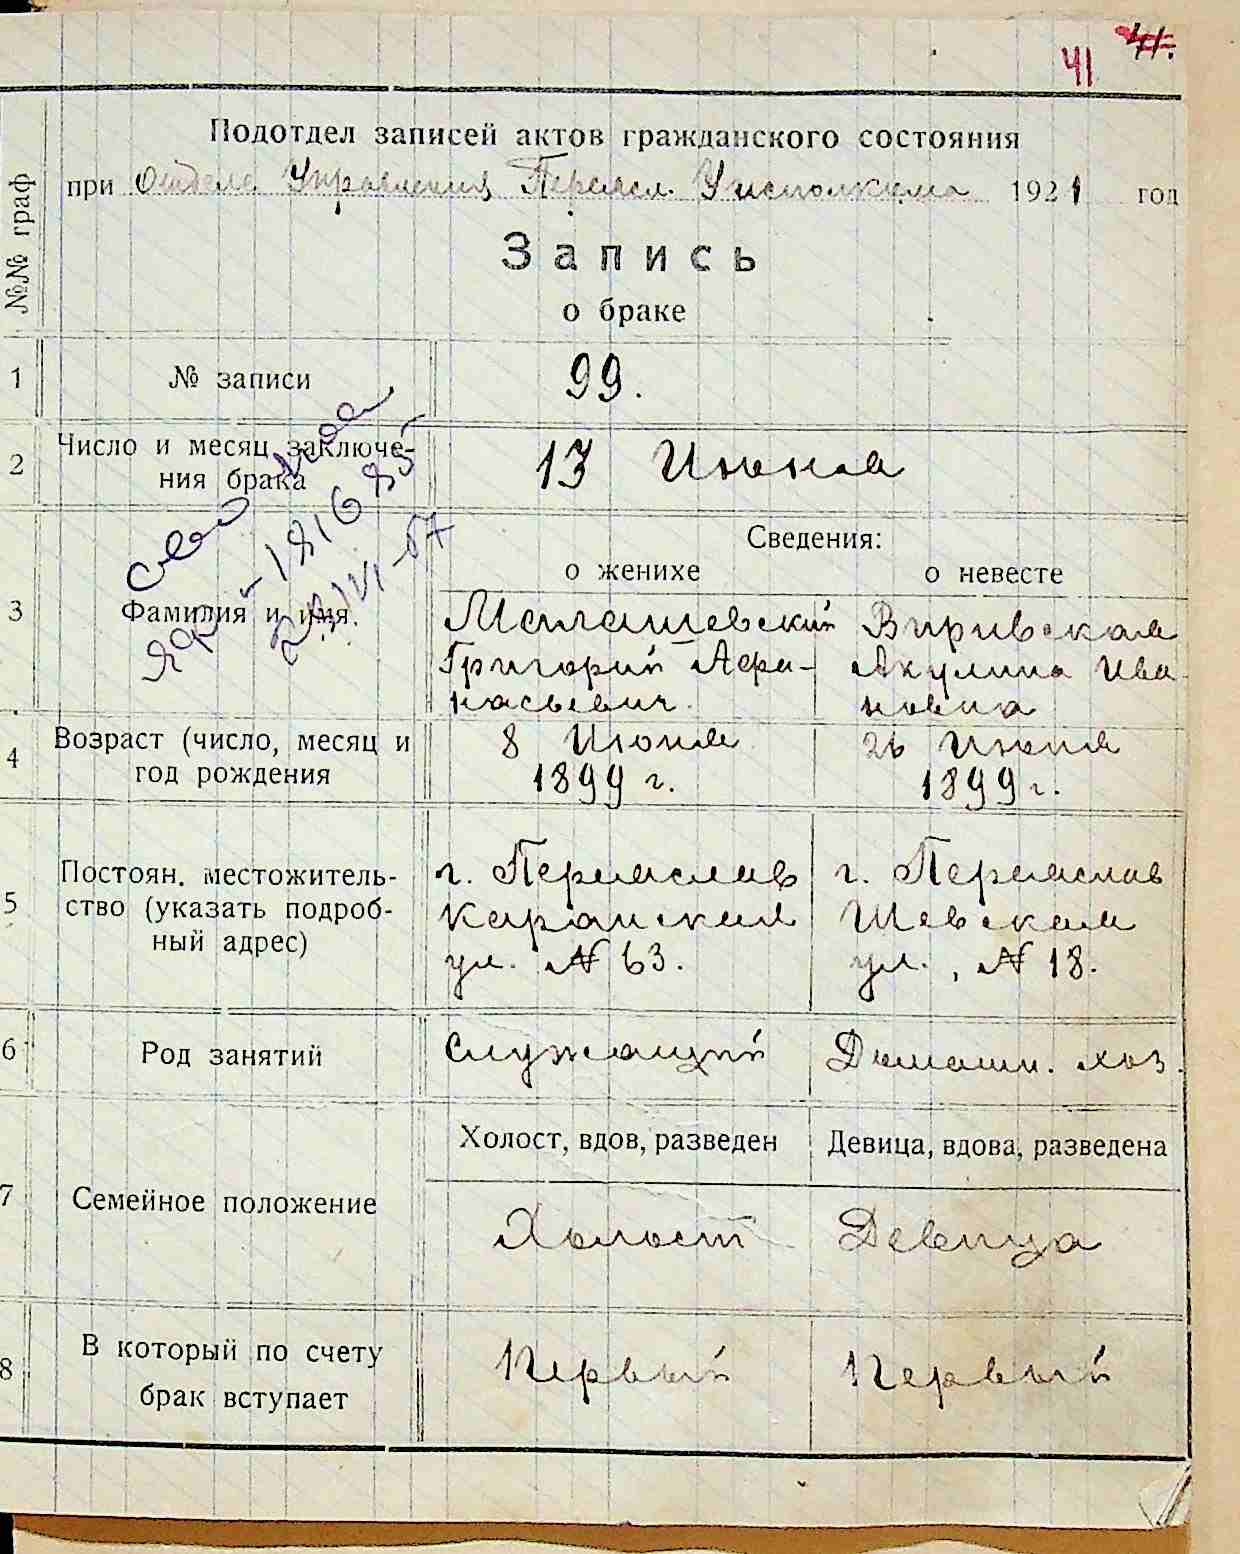 41 41.
Подотдел записей актов гражданского состояния
при Отделе Управления Переясл. Уисполкома 1921 год
№№ граф
Запись
о браке
1 № записи 99.
2 Число и месяц заключе-
ния брака 13 Июня
Сведения:
о женихе о невесте
3 Фамилия и имя. Малашевский Виривская
Григорий Афа- Акулина Ива
насьевич. новна
4 Возраст (число, месяц и 8 Июня 26 Июня
год рождения 1899 г. 1899 г.
5 Постоян. местожитель- г. Переяслав г. Переяслав
ство (указать подроб- Каранская Шевская
ный адрес) ул. № 63. ул., № 18.
6 Род занятий Служащий Домашн. хоз.
Холост, вдов, разведен Девица, вдова, разведена
7 Семейное положение Холост Девица
8 В который по счету Первый Первый
брак вступает